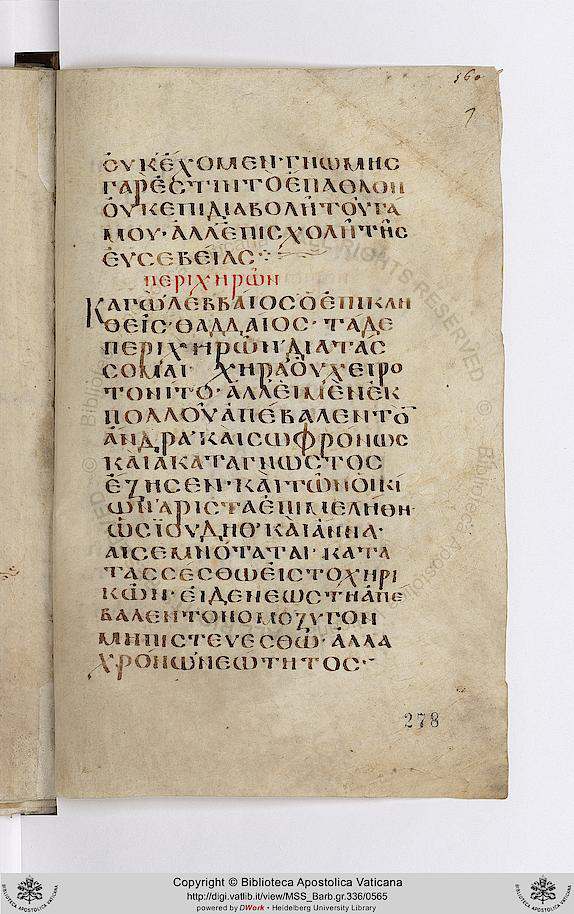 560
7
ΟΥΚΕΧΟΜΕΝ· ΓΝΩΜΗС
ΓΑΡΕСΤΙΝΤΟΕΠΑΘΛΟΝ
ΟΥΚΕΠΙΔΙΑΒΟΛΗΤΟΥΓΑ
ΜΟΥ· ΑΛΛΕΠΙСΧΟΛΗΤΗС
ΕΥСΕΒΕΙΑС
ΠΕΡΙΧΗΡΩΝ
ΚΑΓΩΛΕΒΒΑΙΟСΟΕΠΙΚΛΗ
ΘΕΙС· ΘΑΔΔΑΙΟС· ΤΑΔΕ
ΠΕΡΙΧΗΡΩΝΔΙΑΤΑС
СΟΜΑΙ· ΧΗΡΑΟΥΧΕΙΡΟ
ΤΟΝΙΤΟ· ΑΛΛΕΙΜΕΝΕΚ
ΠΟΛΛΟΥΑΠΕΒΑΛΕΝΤΟ̄
ΑΝΔΡΑ· ΚΑΙСΩΦΡΟΝΩС
ΚΑΙΑΚΑΤΑΓΝΩСΤΟС
ΕΖΗСΕΝ· ΚΑΙΤΩΝΟΙΚΙ
ΩΝΑΡΙСΤΑΕΠΙΜΕΛΗΘΗ·
ΩСΙΟΥΔΗΘ· ΚΑΙΑΝΝΑ·
ΑΙСΕΜΝΟΤΑΤΑΙ· ΚΑΤΑ
ΤΑССΕСΘΩΕΙСΤΟΧΗΡΙ
ΚΩΝ· ΕΙΔΕΝΕΩСΤΗΑΠΕ
ΒΑΛΕΝΤΟΝΟΜΟΖΥΓΟΝ
ΜΗΠΙСΤΕΥΕСΘΩ· ΑΛΛΑ
ΧΡΟΝΩΝΕΩΤΗΤΟС·
278
Copyright © Biblioteca Apostolica Vaticana
http://digi.vatlib.it/view/MSS_Barb.gr.336/0565
powered by DWork - Heidelberg University Library